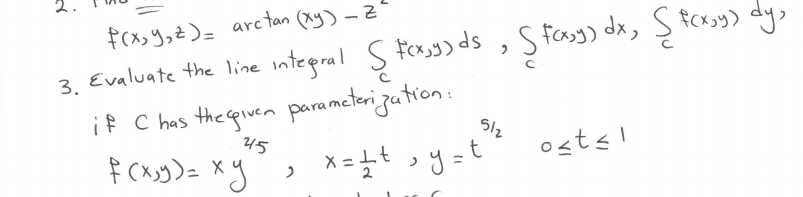 2.
f(x,y,z)= arctan (xy) - z
3. Evaluate the line integral ∫_C f(x,y) ds , ∫_C f(x,y) dx, ∫_C f(x,y) dy,
if C has the given parameterization:
f(x,y)= x y^{2/5} , x = 1/2 t , y = t^{5/2} 0≤t≤1